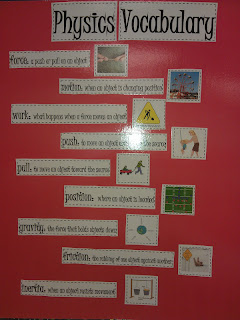 Physics Vocabulary
force: a push or pull on an object
motion: when an object is changing position
work: what happens when a force moves an object
push: to move an object away from the source
pull: to move an object toward the source
position: where an object is located
gravity: the force that holds objects down
friction: the rubbing of one object against another
inertia: when an object resists movement